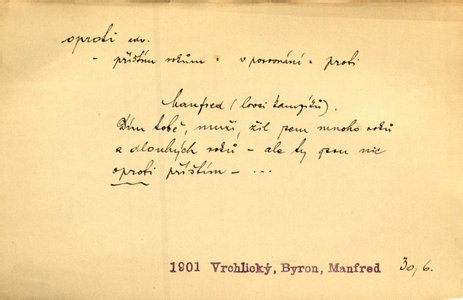 oproti adv.
- příštím rokům = v porovnání = proti
Manfred (lovci kamzíků).
Dím tobě, muži, žil jsem mnoho roků
a dlouhých roků - ale ty jsou nic
oproti příštím - ...
1901 Vrchlický, Byron, Manfred 30, 6.